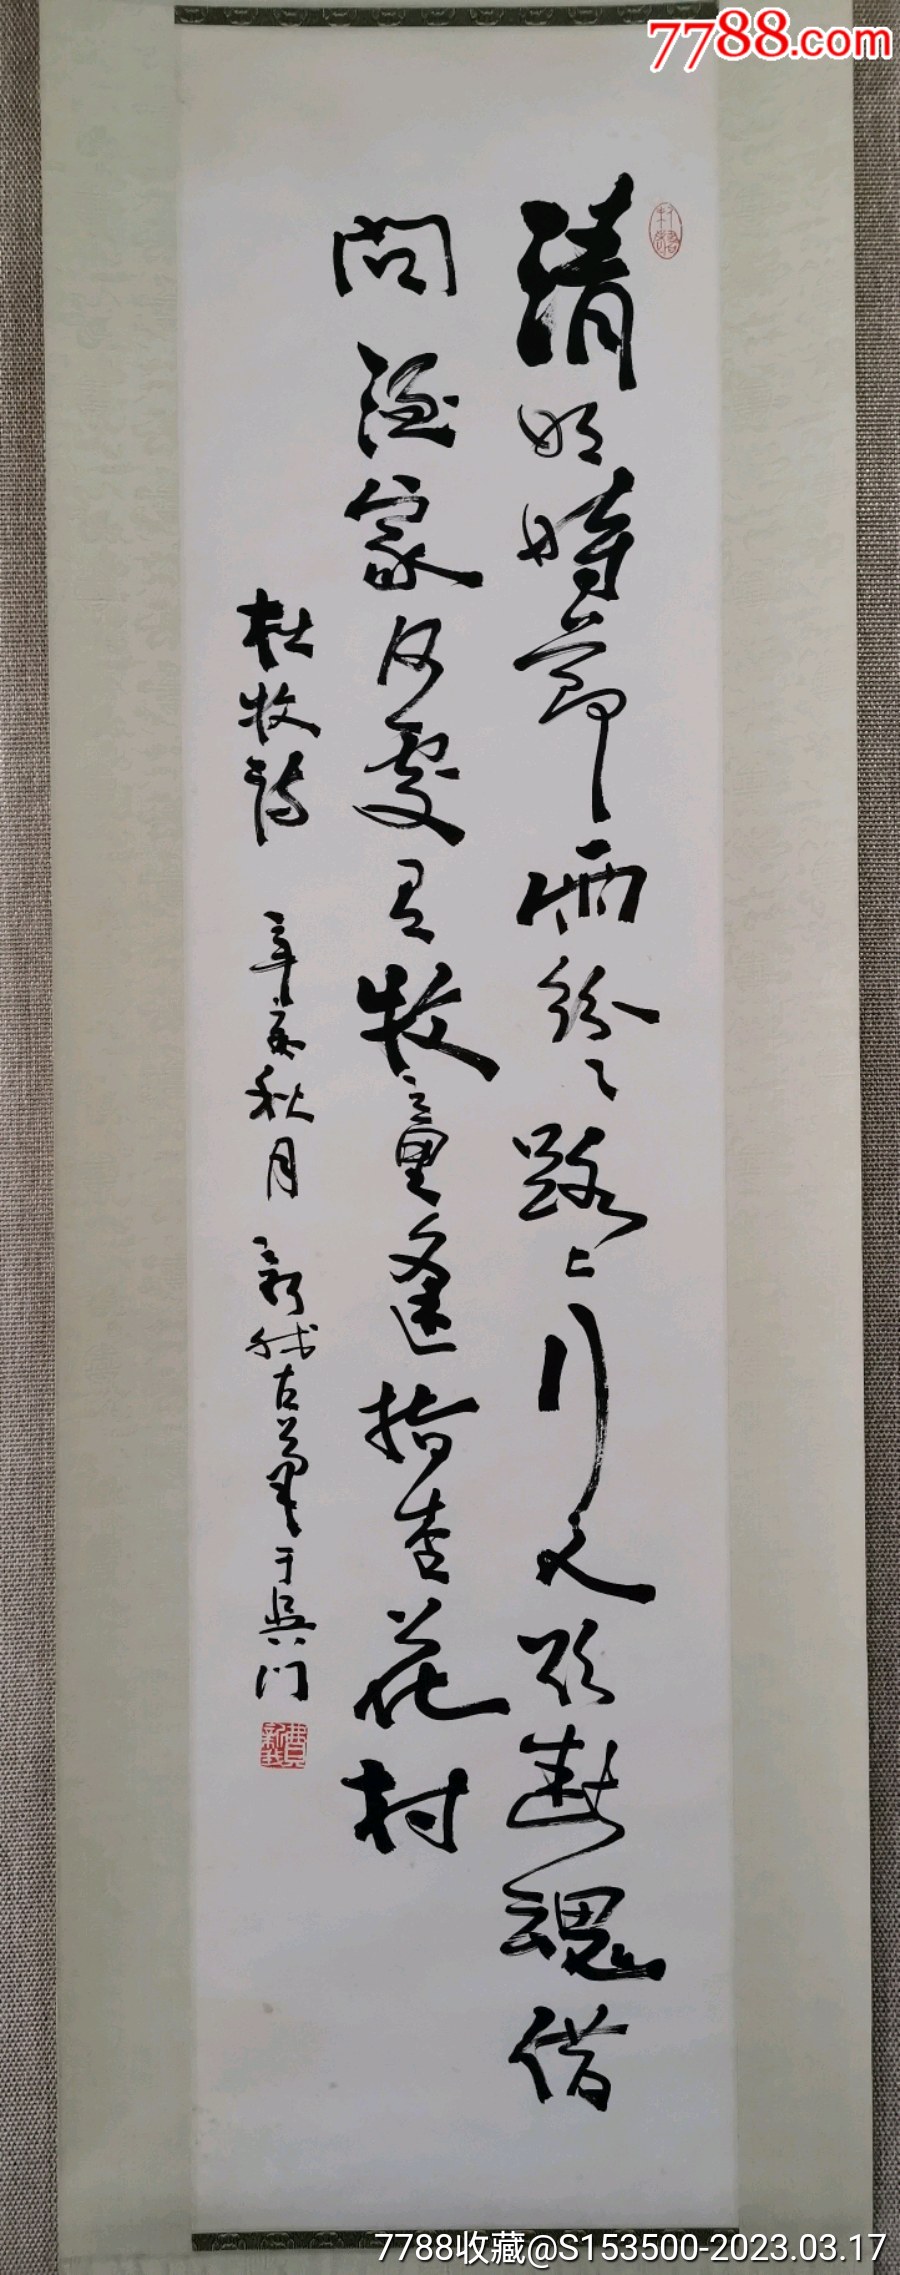 7788.com
清明時節雨紛々路上行人欲斷魂借
問酒家何處有牧童遙指杏花村
杜牧詩 辛亥秋月 新我左筆于吳门
費新我
7788收藏@S153500-2023.03.17